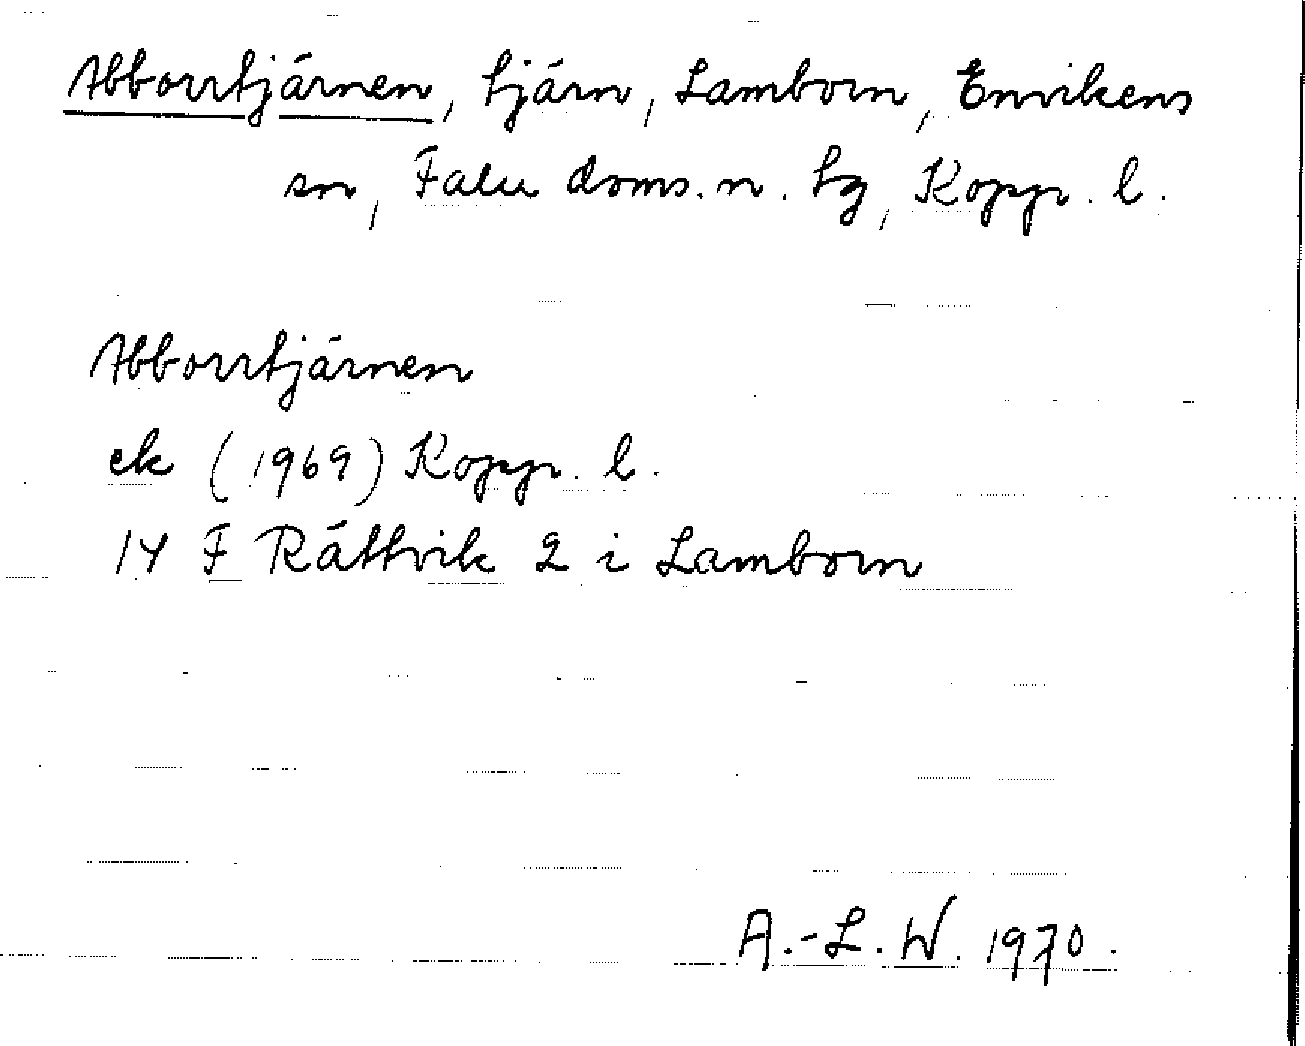 Abborrtjärnen, tjärn, Lamborn, Envikens
sn, Falu doms. n. tg, Kopp. l.
Abborrtjärnen
ek (1969) Kopp. l.
14 F Rättvik 2 i Lamborn
A.-L. W. 1970.